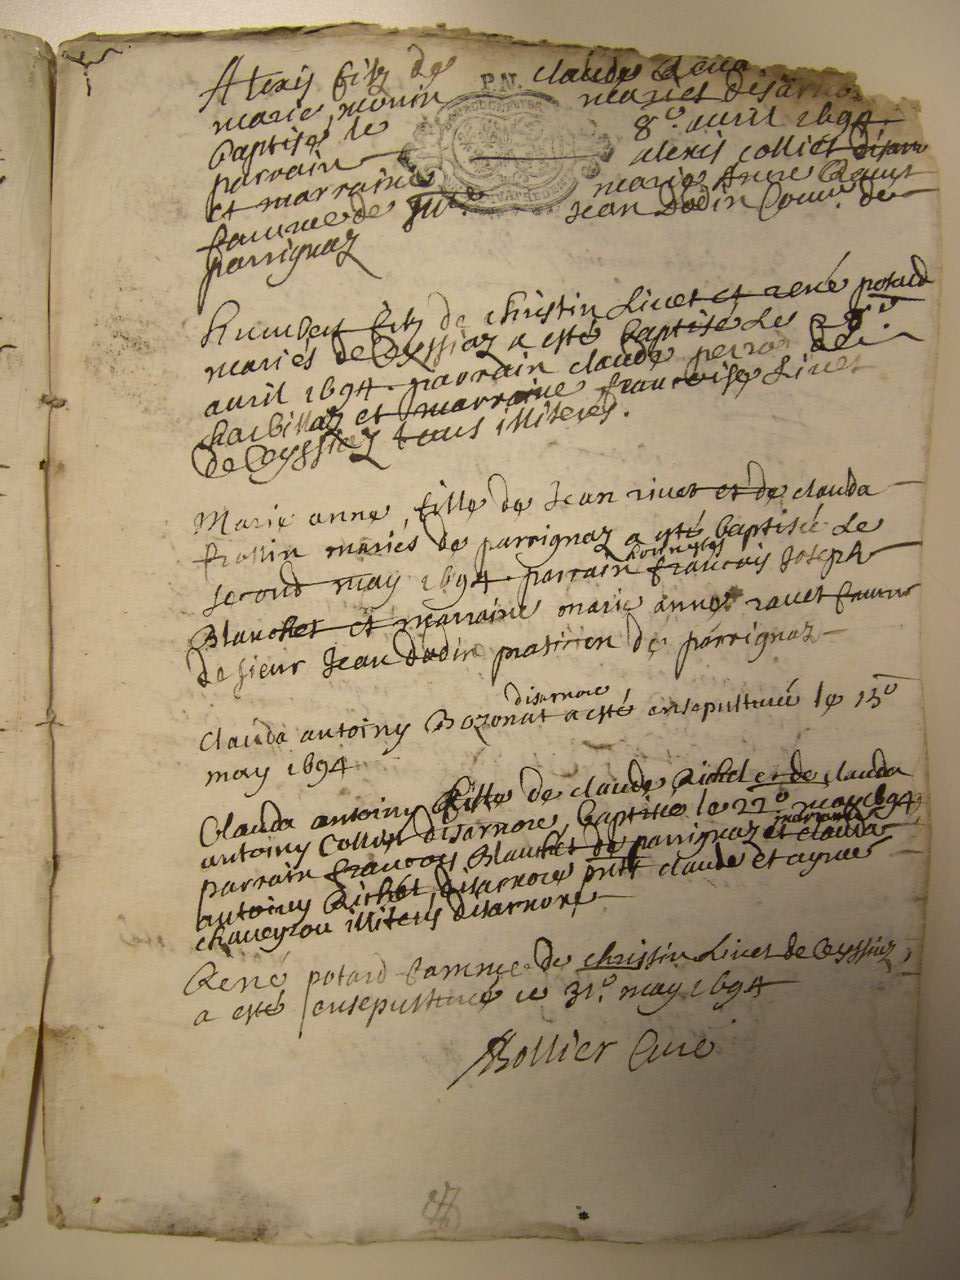 Alexis filz de claude
marie monin mariés disarnore
baptisé le 8.o avril 1694.
parrain alexis colliet disarn
et marraine marie Anne Ravet
famme de Jean Dodin Comm. de
parrignaz
P.N.
humbert filz de christin Livet et rené potard
mariés de Ceyssiaz a esté baptisé Les
avril 1694. parrain claude perro de
charbillaz et marraine francoise Livet
de Ceyssiaz tous illiterés.
Marie anne, fille de Jean rivet et de clauda
frollin mariés de parrignaz a esté baptisée Le
second may 1694. parrain francois Joseph
Blanchet et marraine marie anne ravet famme
de sieur Jean dodin praticien de parrignaz
disarnore
clauda antoiny Bozonat a esté ensepulturée le 15o
may 1694
Clauda antoiny fille de claude Richel et de clauda
antoiny Colliet disarnore, baptisée le 22o may 1694,
parrain francois Blanchet de parrignaz marraine et clauda
antoiny Richel disarnore pntt claude et aymé
chaveyrou illiterés disarnore
René potard famme de christin Livet de Ceyssiaz,
a esté ensepulturée le 31.o may 1694
Bollier Curé